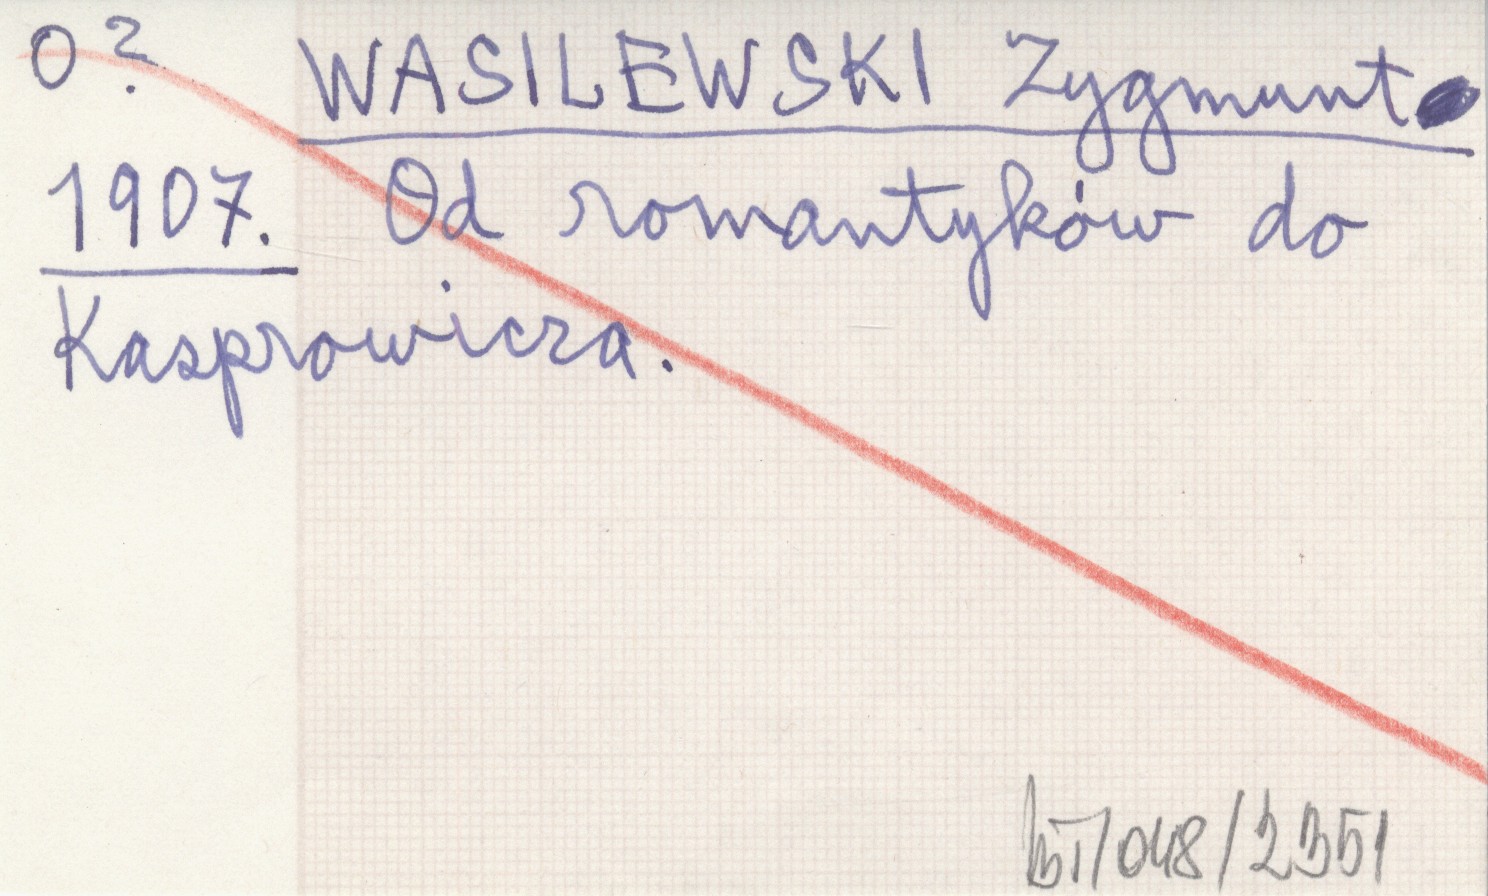 O? WASILEWSKI Zygmunt
1907. Od romantyków do
Kasprowicza.
BT/048/2351